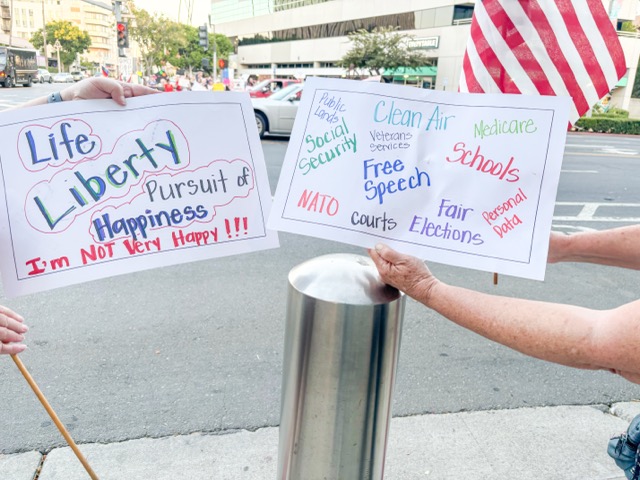 Life
Liberty
Pursuit of
Happiness
I'm NOT Very Happy !!!
Public
Lands
Clean Air
Medicare
Social
Security
Veterans
Services
Schools
Free
Speech
NATO
Courts
Fair
Elections
Personal
Data